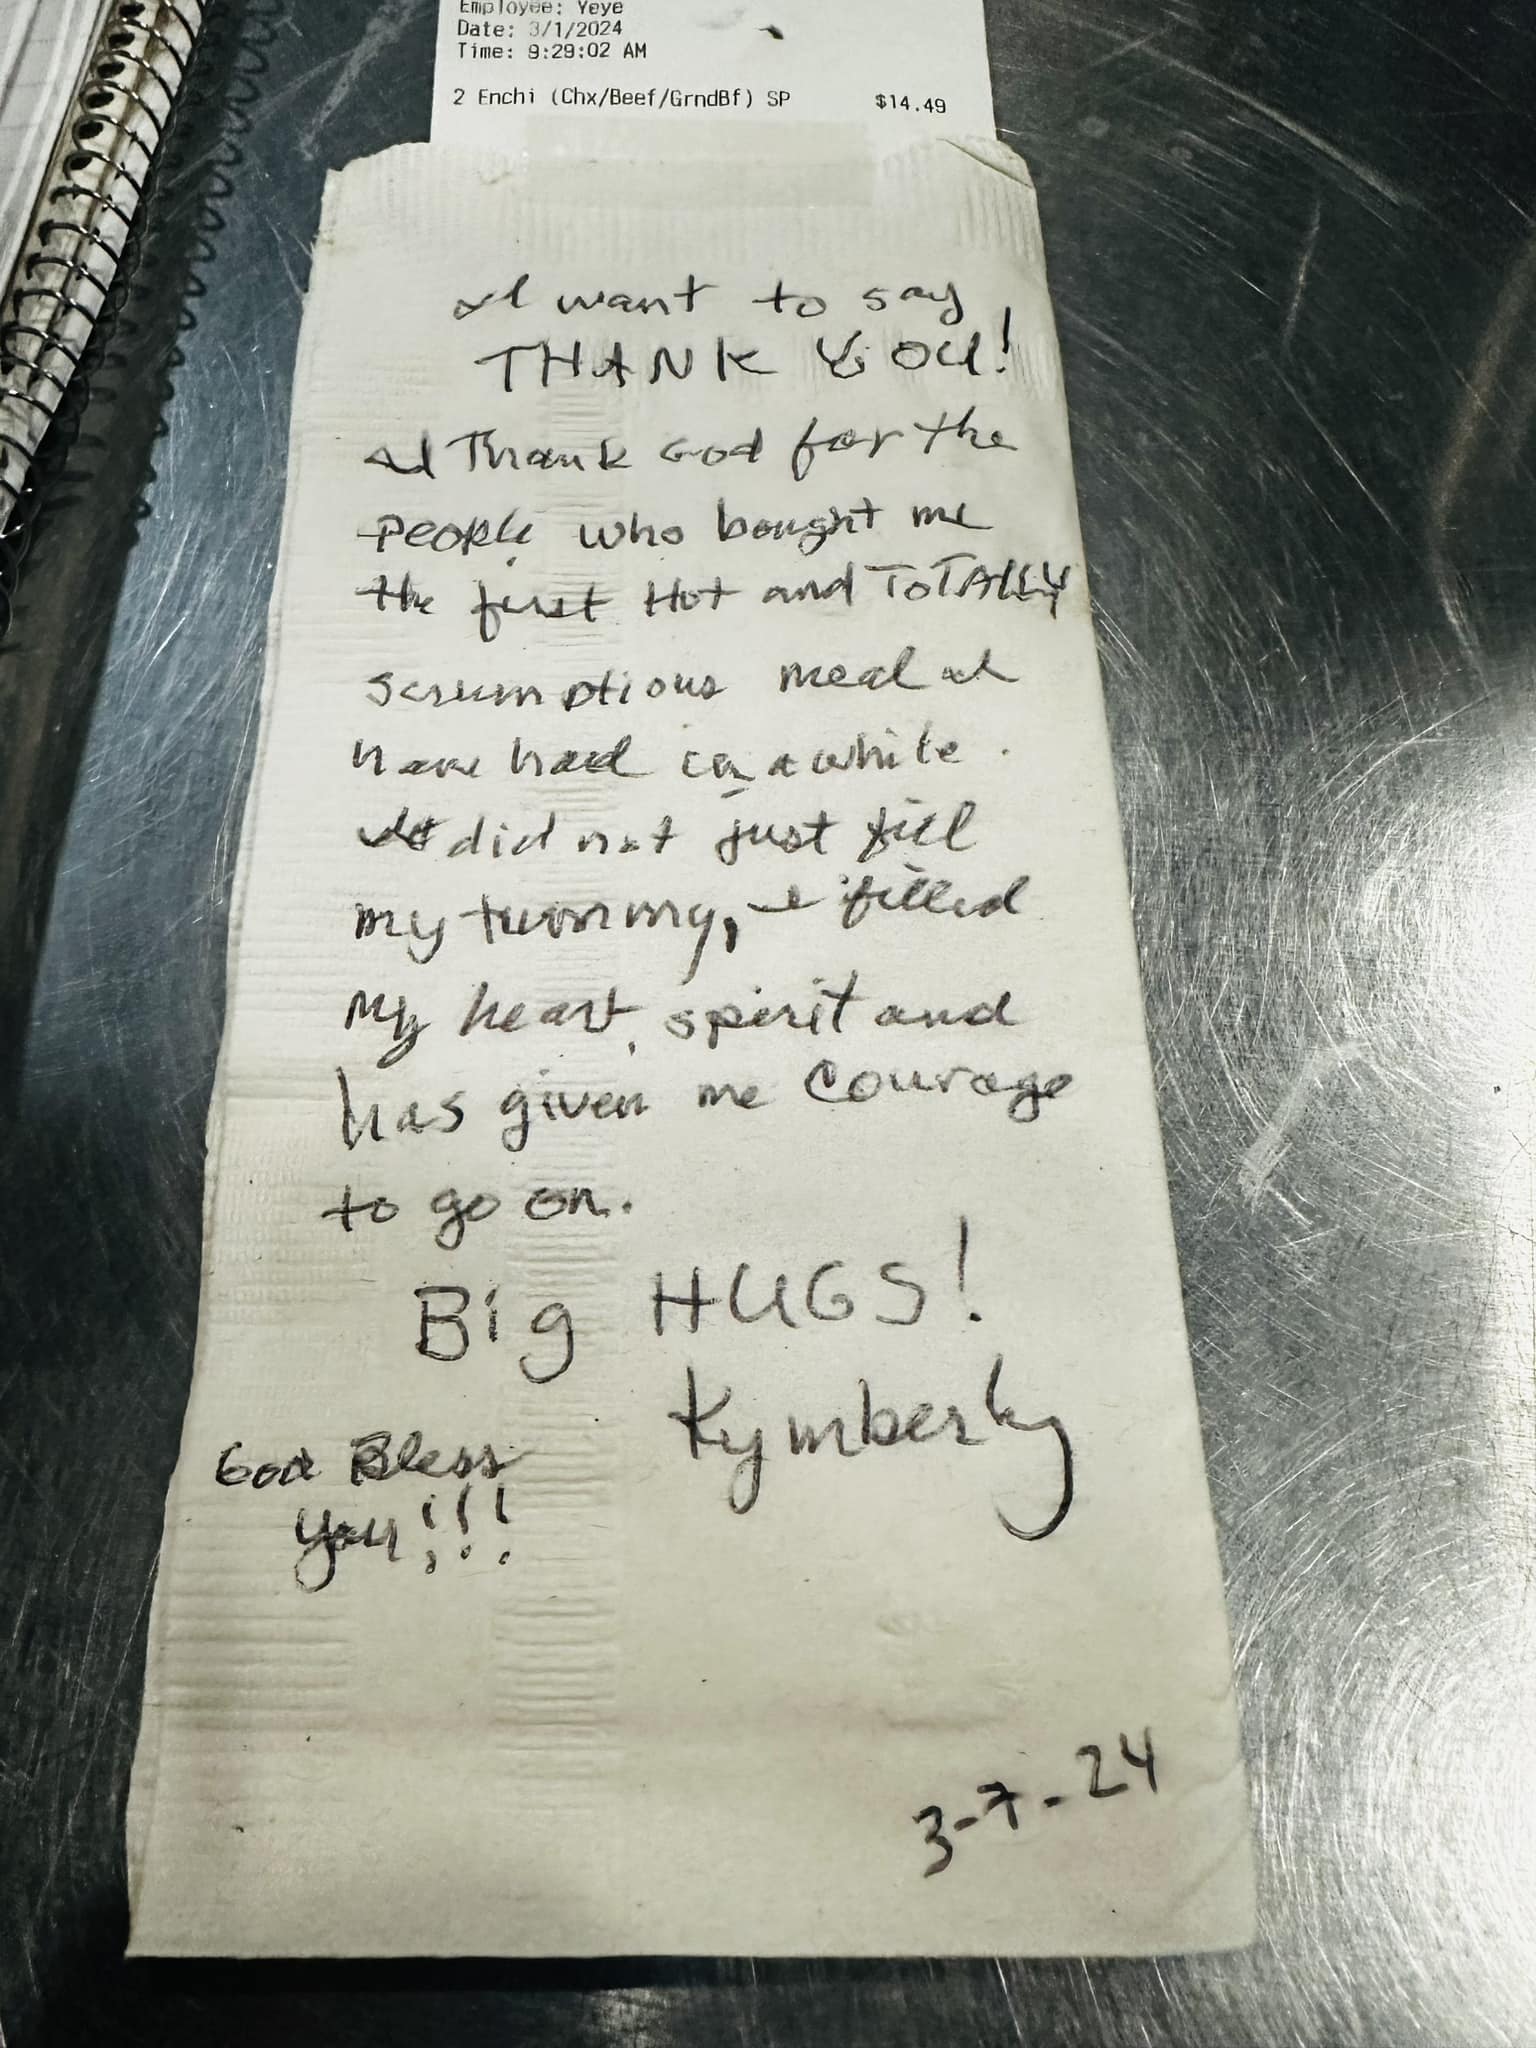 Employee: Yeye
Date: 3/1/2024
Time: 9:29:02 AM
2 Enchi (Chx/Beef/GrndBf) SP $14.49
I want to say
THANK YOU!
I Thank God for the
people who bought me
the first Hot and TOTALLY
scrumptious meal I
have had in a while.
It did not just fill
my tummy, it filled
my heart, spirit and
has given me courage
to go on.
Big HUGS!
Kymberly
God Bless
you!!!
3-7-24